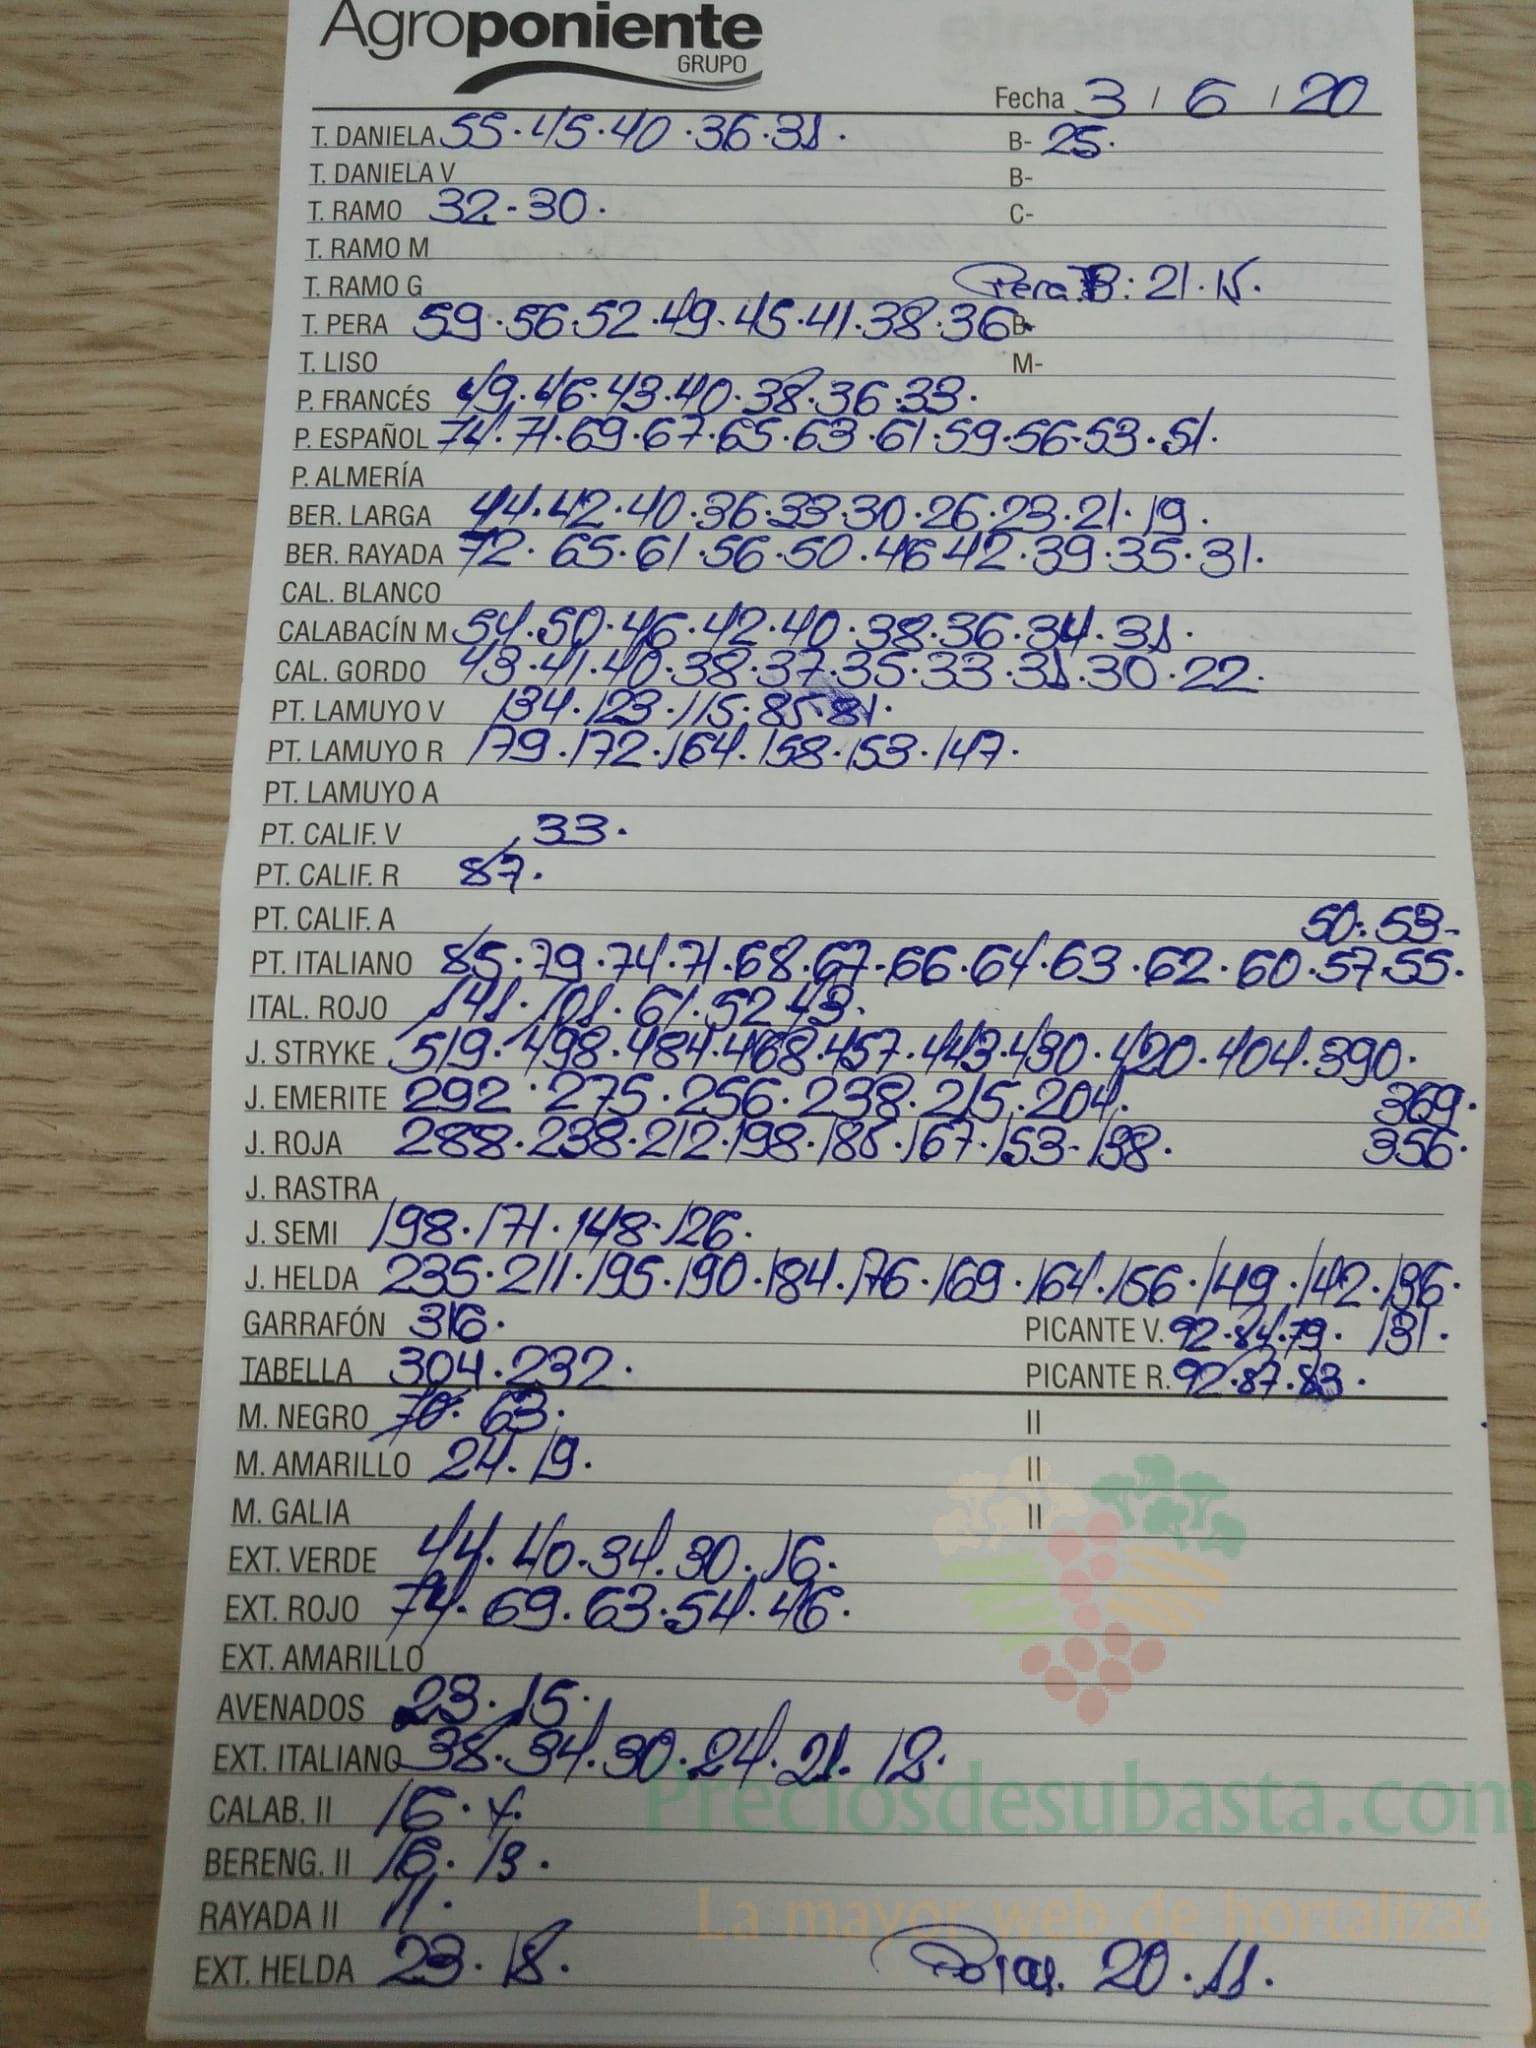 Agroponiente
GRUPO
Fecha 3 / 6 / 20
T. DANIELA 55·45·40·36·31· B- 25·
T. DANIELA V B-
T. RAMO 32-30· C-
T. RAMO M
T. RAMO G Pera B: 21·15.
T. PERA 59·56·52·49·45·41·38·36 B-
T. LISO M-
P. FRANCÉS 49·46·43·40·38·36·33·
P. ESPAÑOL 74·71·69·67·65·63·61·59·56·53·51·
P. ALMERÍA
BER. LARGA 44·42·40·36·33·30·26·23·21·19·
BER. RAYADA 72·65·61·56·50·46·42·39·35·31·
CAL. BLANCO
CALABACÍN M 54·50·46·42·40·38·36·34·31·
CAL. GORDO 43·41·40·38·37·35·33·31·30·22·
PT. LAMUYO V 134·123·115·85·81·
PT. LAMUYO R 179·172·164·158·153·147·
PT. LAMUYO A
PT. CALIF. V 33·
PT. CALIF. R 87·
PT. CALIF. A 50·53-
PT. ITALIANO 85·79·74·71·68·67·66·64·63·62·60·57·55·
ITAL. ROJO 141·101·61·52·43·
J. STRYKE 519·498·484·468·457·443·430·420·404·390·
J. EMERITE 292·275·256·238·215·204· 369·
J. ROJA 288·238·212·198·185·167·153-138· 356·
J. RASTRA
J. SEMI 198·171·148·126·
J. HELDA 235·211·195·190·184·176·169·164·156·149·142·136·
GARRAFÓN 316· PICANTE V. 92·84·79· 131·
TABELLA 304·232· PICANTE R. 92·87·83·
M. NEGRO 70·63· II
M. AMARILLO 24·19· II
M. GALIA II
EXT. VERDE 44·40·34·30·16·
EXT. ROJO 74·69·63·54·46·
EXT. AMARILLO
AVENADOS 23·15·
EXT. ITALIANO 38·34·30·24·21·12·
Preciosdesubasta.com
CALAB. II 16·4·
BERENG. II 16·13·
RAYADA II 11·
La mayor web de hortalizas
EXT. HELDA 23·18· 20·11·